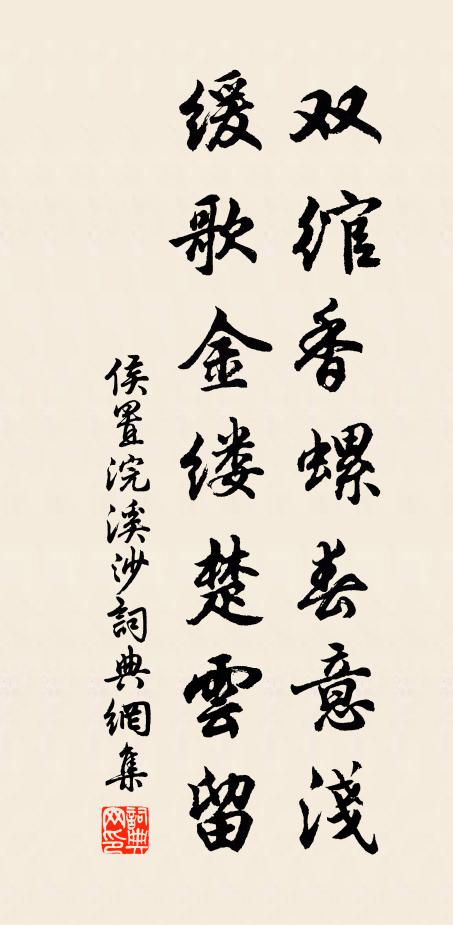 双绾香螺春意浅
缓歌金缕楚雲留
侯置浣溪沙詞典網集
詞典
网印